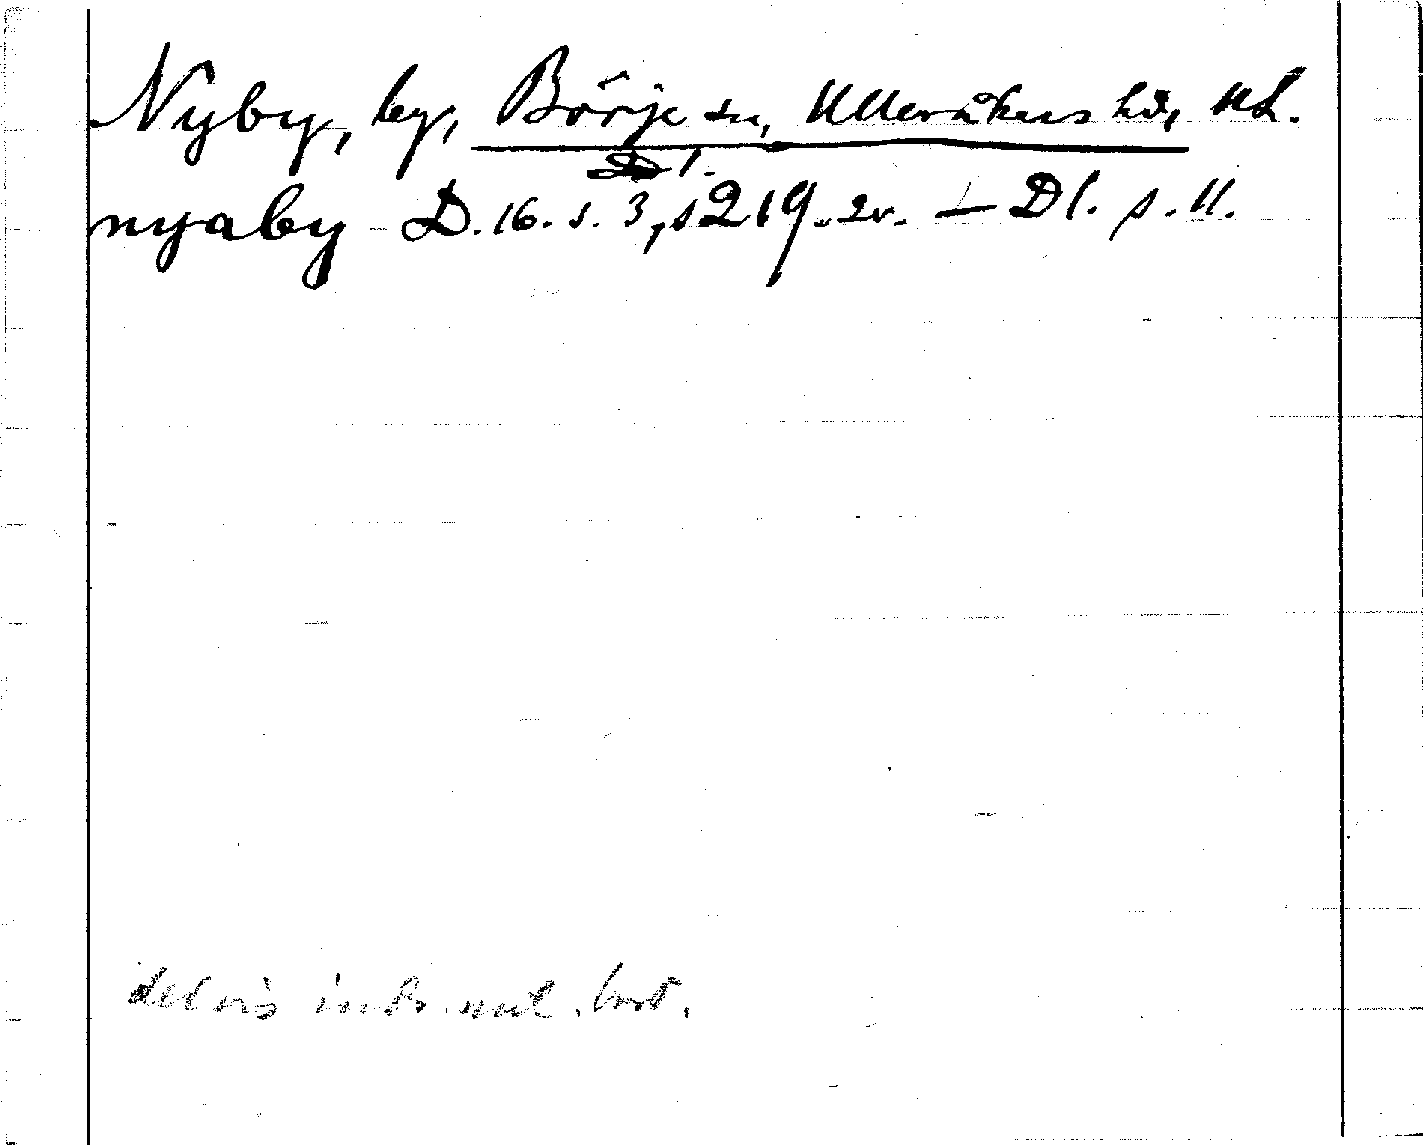 Nyby, by, Börje sn, Ulleråkers hd, Ul.
nyaby D. 16. s. 3, s 219. 2v. — Dl. s. U.
delvis